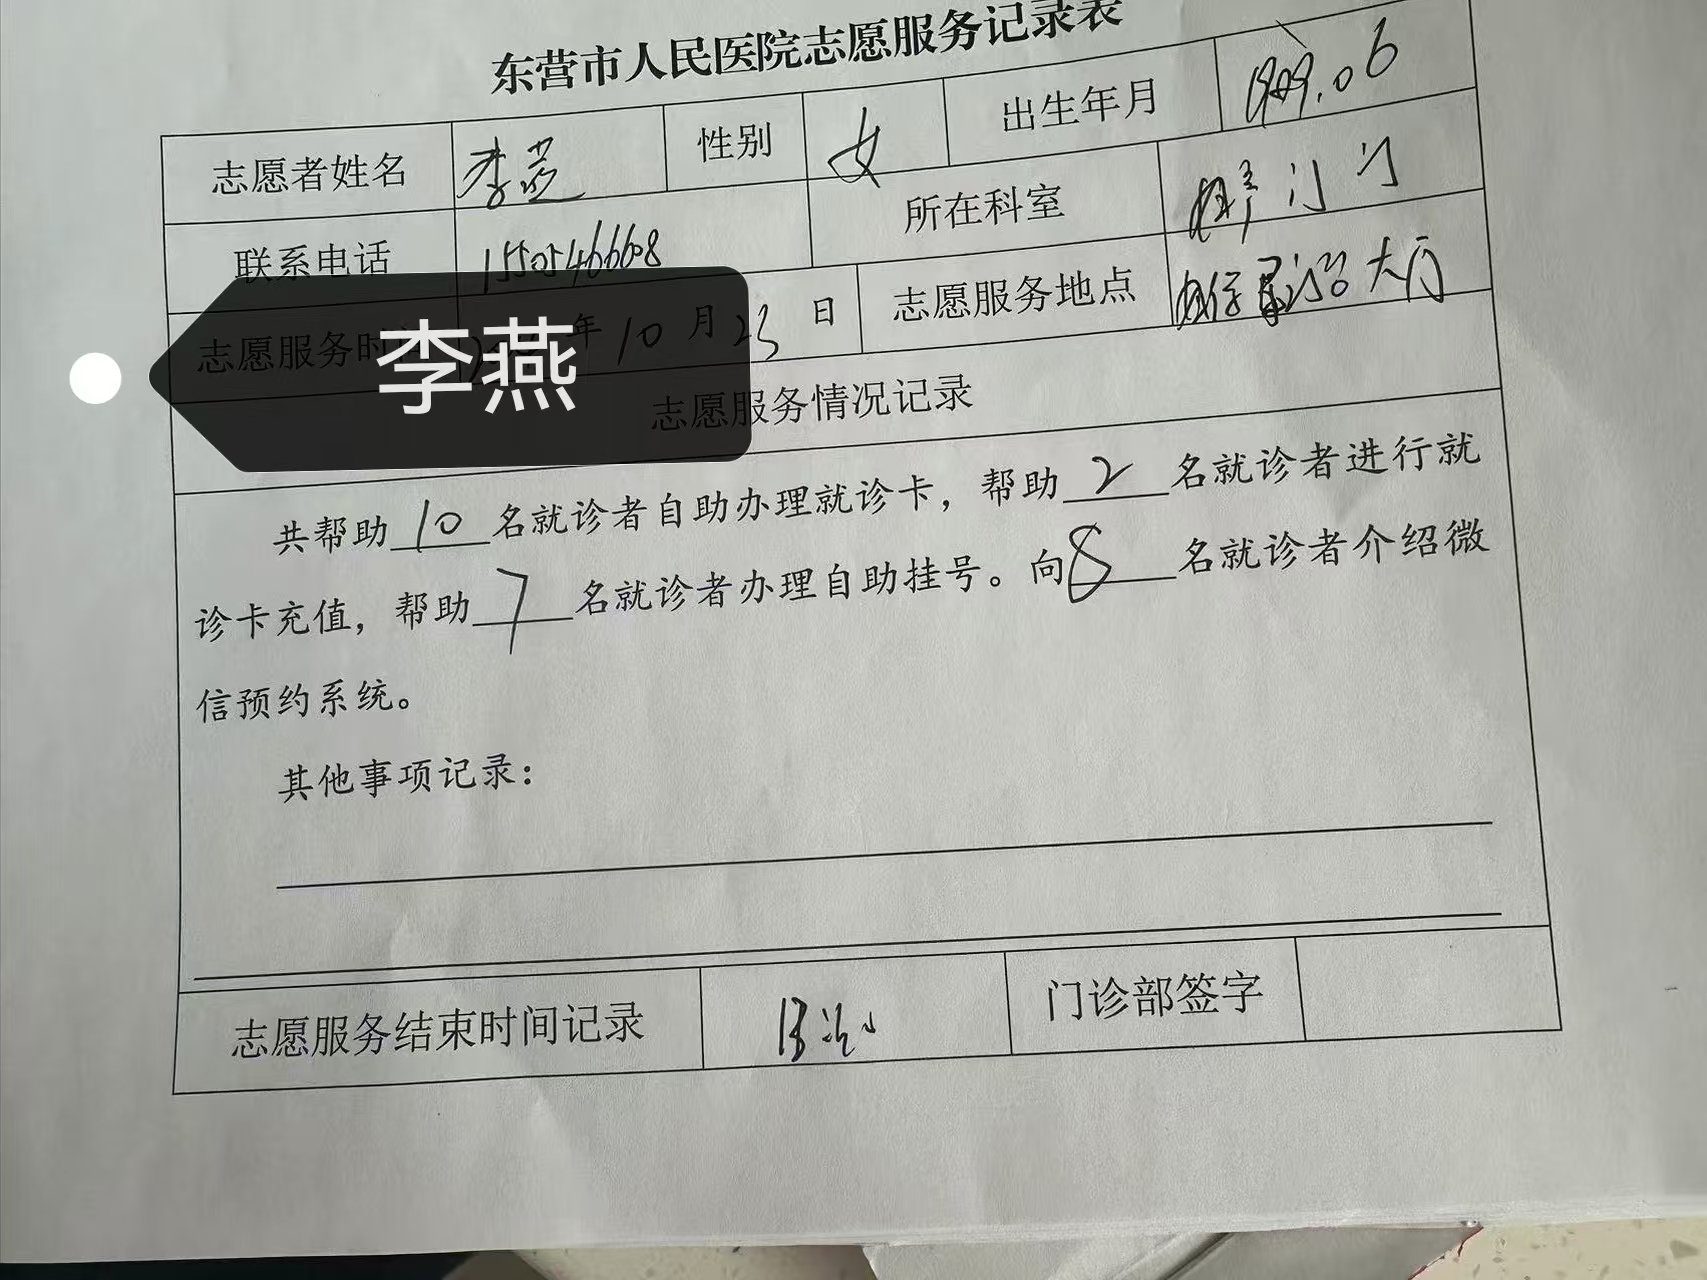 东营市人民医院志愿服务记录表
志愿者姓名 李燕 性别 女 出生年月
联系电话 所在科室 妇产门诊
志愿服务时间 年10月23日 志愿服务地点 大厅
李燕
志愿服务情况记录
共帮助10名就诊者自助办理就诊卡，帮助2名就诊者进行就
诊卡充值，帮助7名就诊者办理自助挂号。向8名就诊者介绍微
信预约系统。
其他事项记录：
志愿服务结束时间记录 门诊部签字